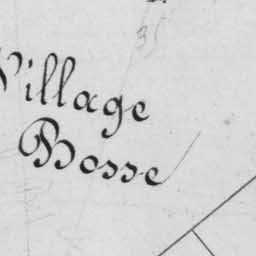 Village
Bosse